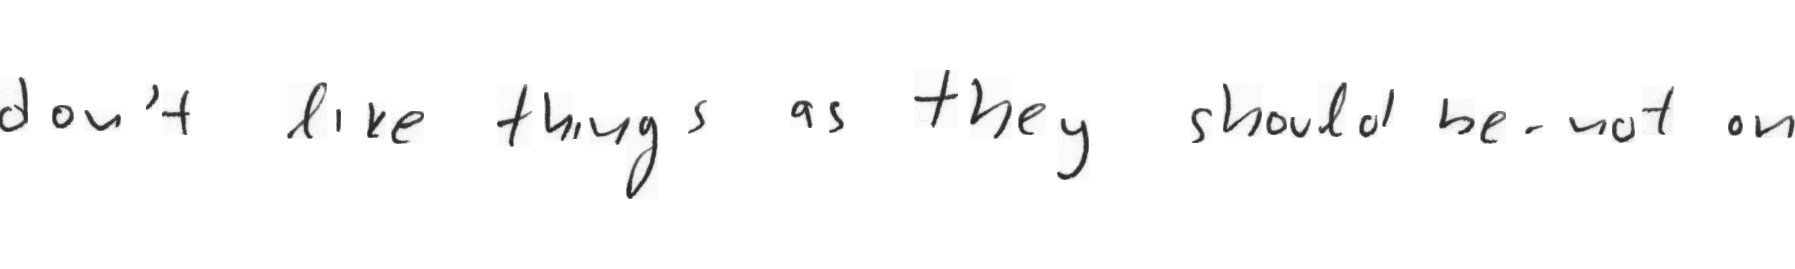 don't like things as they should be-not on